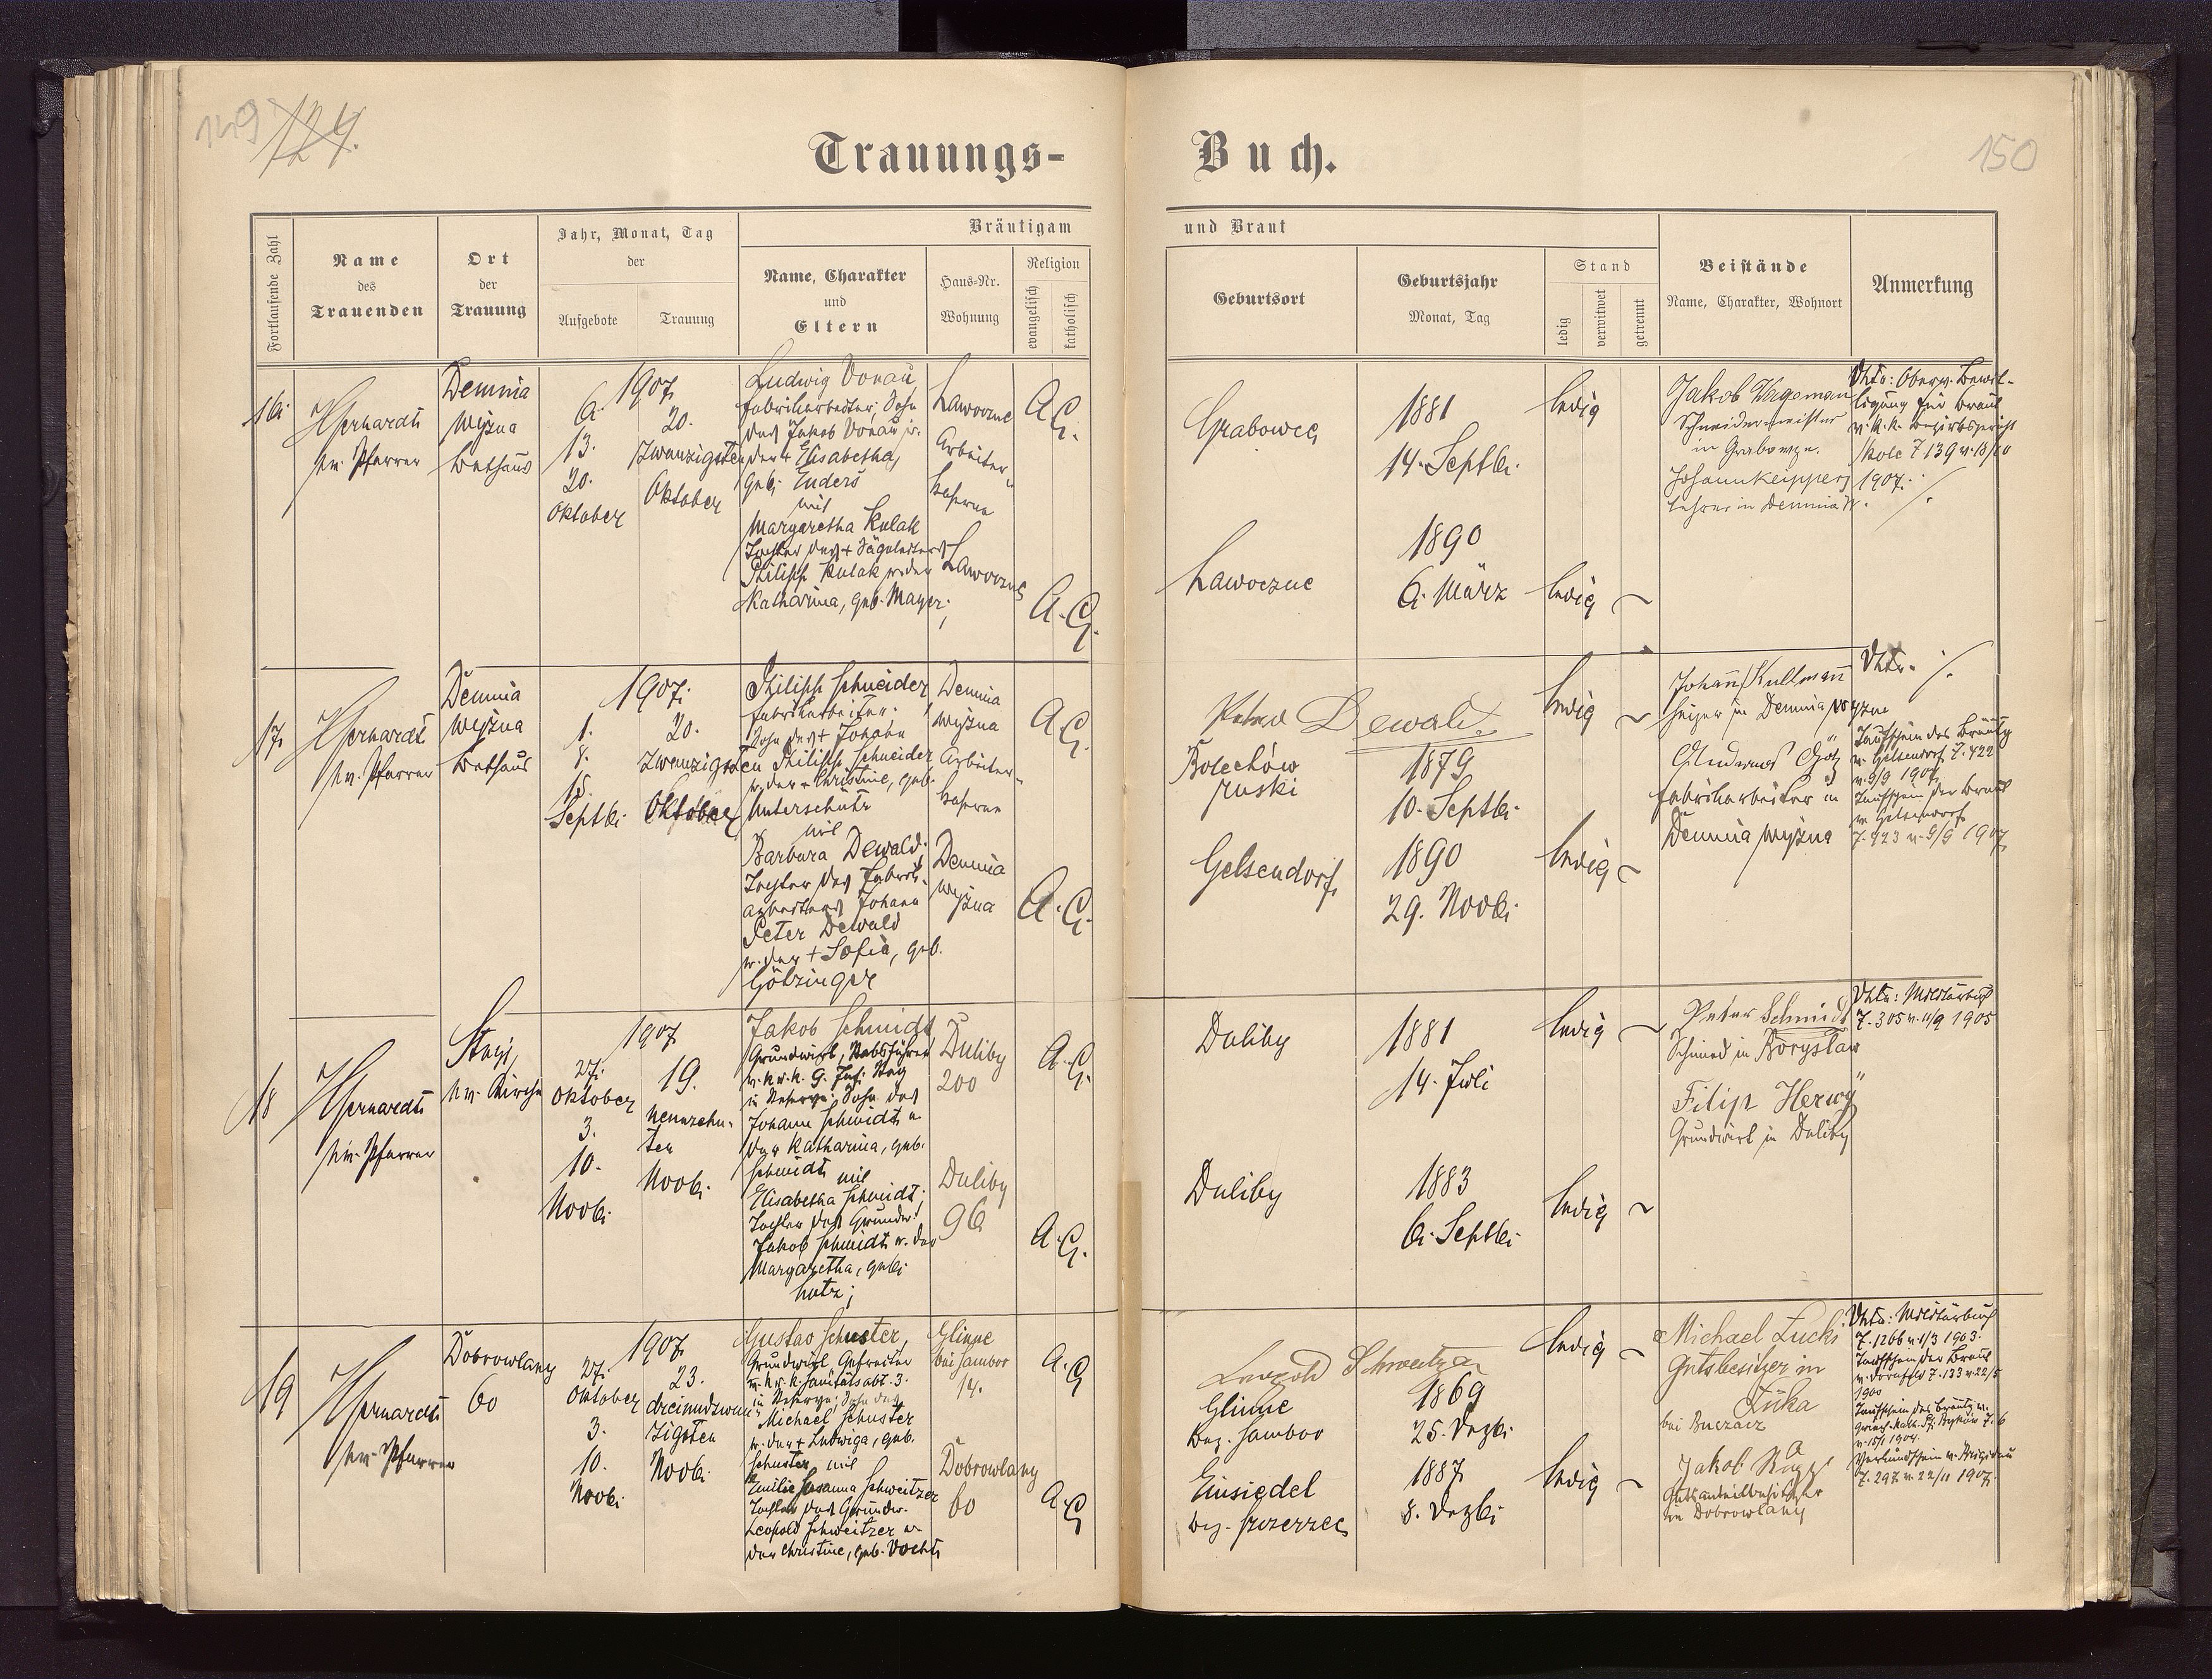 149 124.
Trauungs-Buch.
150
Fortlaufende Zahl
Name
des
Trauenden
Ort
der
Trauung
Jahr, Monat, Tag
der
Aufgebote
Trauung
Bräutigam
und Braut
Name, Charakter
und
Eltern
Haus-Nr.
Wohnung
Religion
evangelisch
katholisch
Geburtsort
Geburtsjahr
Monat, Tag
Stand
ledig
verwitwet
getrennt
Beistände
Name, Charakter, Wohnort
Anmerkung
16.
Pfarrer
Demnia
Wyżna
Bethaus
1907
6.
13.
20.
Oktober
20.
Zwanzigsten
Oktober
Ludwig Donau,
Fabriksarbeiter; Sohn
des Jakob Donau
der + Elisabetha,
geb. Enders
mit
Margaretha Kulak
Tochter des +
Philipp Kulak u. der
Katharina, geb. Mayer;
Lawoczne
Arbeiter-
kaserne
Lawoczne
A. C.
A. C.
Grabowce
1881
14. Septb.
ledig
Lawoczne
1890
6. März
ledig
Jakob Wageman
Schneidermeister
in
Johann Keipper
Lehrer in Demnia W.
Bewil-
ligung für Braut
v. k. k. Bezirksgericht
Skole Z 139 v. 18/10
1907.
17.
Pfarrer
Demnia
Wyżna
Bethaus
1907.
1.
8.
15.
Septb.
20.
Zwanzigsten
Oktober
Philipp Schneider,
Fabriksarbeiter;
Sohn des + Johann
Philipp Schneider
u. der + Christine, geb.
Unterschütz
mit
Barbara Dewald;
Tochter des Fabriks-
arbeiters Johann
Peter Dewald
u. der + Sofia, geb.
Götzinger
Demnia
Wyżna
Arbeiter-
kaserne
Demnia
Wyżna
A. C.
A. C.
Dewald
Bolechów
ruski
1879
10. Septb.
ledig
Gelsendorf
1890
29. Novb.
ledig
Johann Kullmann
Heizer in Demnia wyzne
Andreas Götz
Fabriksarbeiter in
Demnia Wyżna
Taufschein des Bräutg
v. Gelsendorf Z. 422
v. 9/9 1907
Taufschein der Braut
v. Gelsendorf
Z. 423 v. 9/9 1907
18
Pfarrer
Stryj,
ev. Kirche
1907
27.
Oktober
3.
10.
Novb.
19.
Neunzehn-
ten
Novb.
Jakob Schmidt
Grundwirt,
in Reserve; Sohn des
Johann Schmidt u.
der Katharina, geb.
Schmidt mit
Elisabetha Schmidt;
Tochter des Grundw.
Jakob Schmidt u. der
Margaretha, geb.
Duliby
200
Duliby
96
A. C.
A. C.
Duliby
1881
14. Juli
ledig
Duliby
1883
6. Septb.
ledig
Peter Schmidt
Schmied in Borysław
Filip Herwy
Grundwirt in Duliby
Z. 305 v. 11/9 1905
19
Pfarrer
Dobrowlany
60
1907
27.
Oktober
3.
10.
Novb.
23.
dreiundzwan-
zigsten
Novb.
Gustav Schuster,
Grundwirt, Gefreiter
v. k. u. k. Sanitätsabt. 3.
in Reserve; Sohn des
Michael Schuster
u. der + Ludwiga, geb.
Schuster, mit
Emilie Susanna Schweitzer
Tochter des Grundw.
Leopold Schweitzer u.
der Christine, geb. Vocht
Glinne
bei Sambor
14.
Dobrowlany
60
A. C.
A. C.
Leopold Schweitzer
Glinne
Bez. Sambor
1869
25. Dezb.
ledig
Einsiedel
Bez. Szczerzec
1887
8. Dezb.
ledig
Michael Lucki
Gutsbesitzer in
bei Buczacz
Jakob
Gutsanteilbesitzer
in Dobrowlany
Z. 1266 v. 1/3 1903.
Taufschein der Braut
v. Dornfeld Z. 133 v. 22/5
1900
Taufschein des Bräutg. v.
v. 15/1 1904.
Verkündschein v.
Z. 297 v. 22/11 1907.